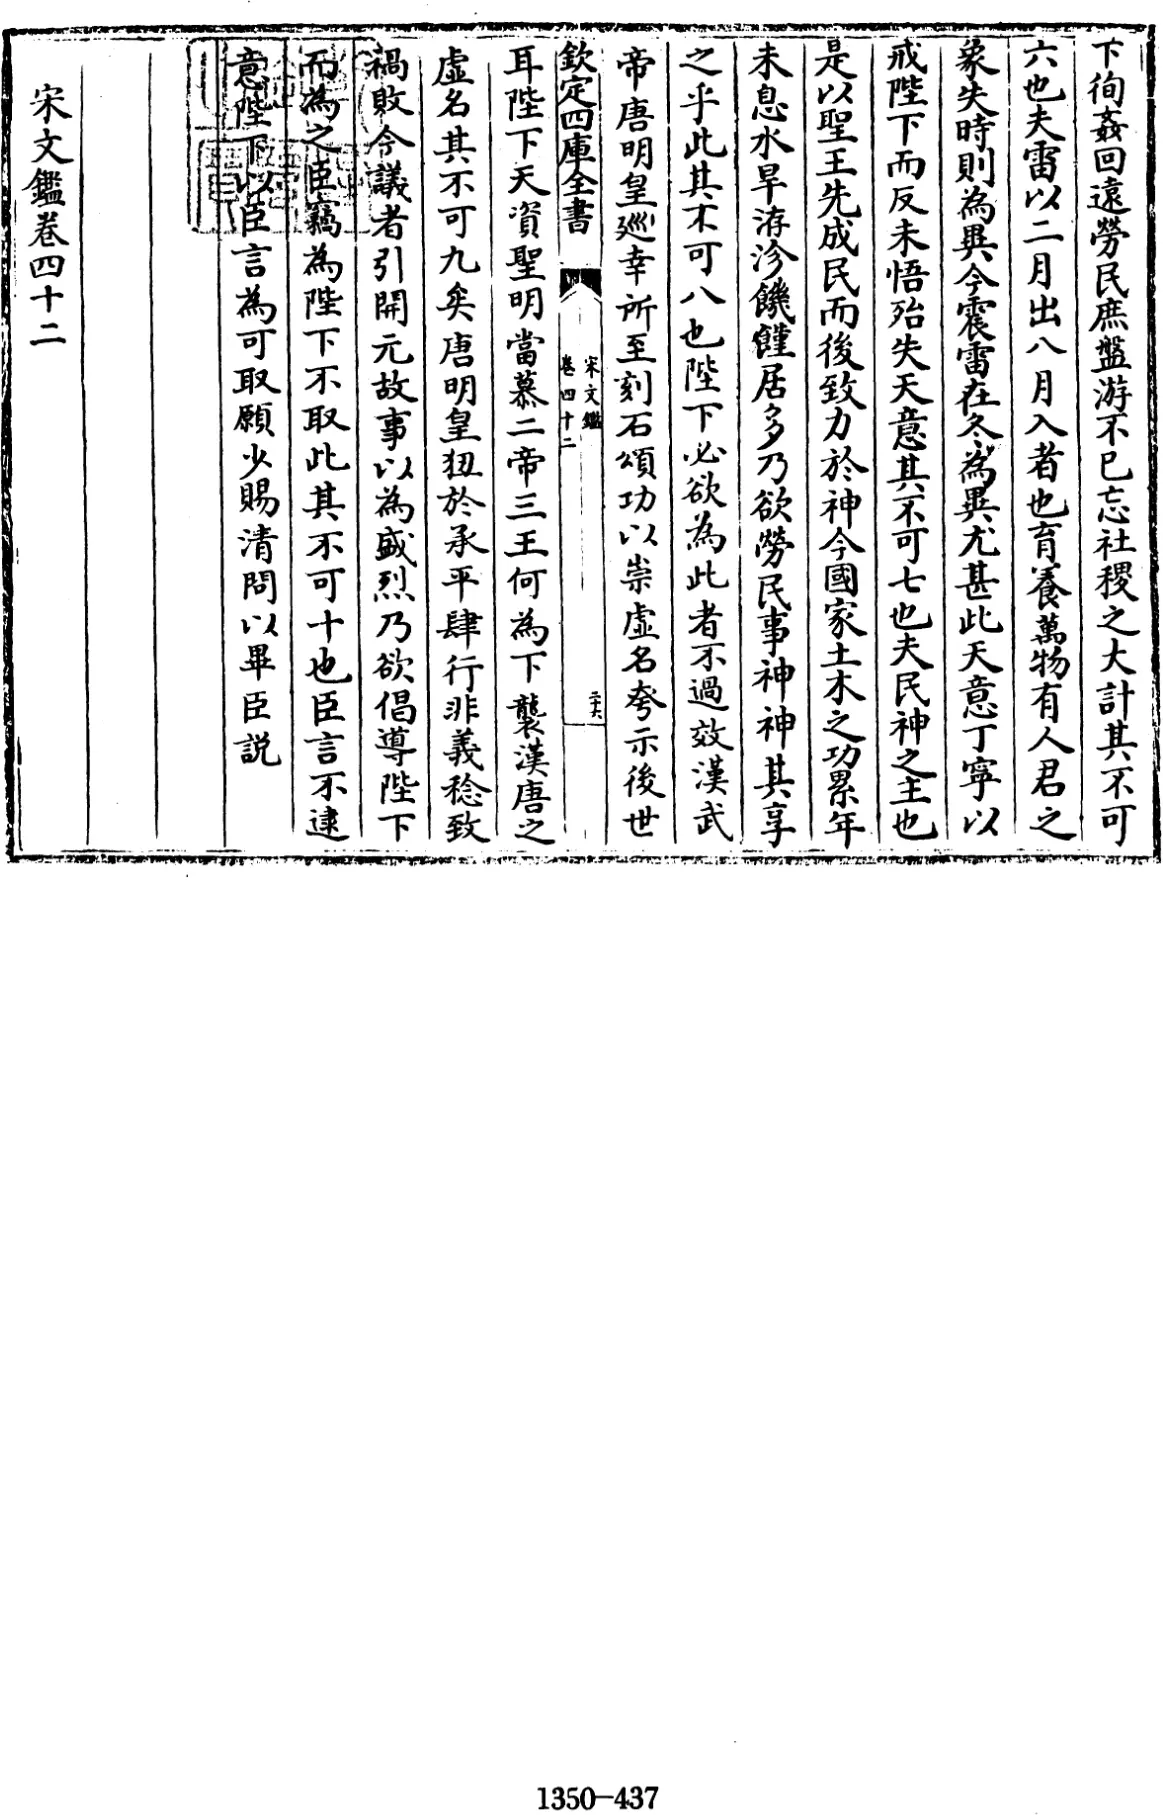 下徇姦回遠勞民庶盤游不已忘社稷之大計其不可
六也夫雷以二月出八月入者也育養萬物有人君之
象失時則為異今震雷在冬為異尤甚此天意丁寧以
戒陛下而反未悟殆失天意其不可七也夫民神之主也
是以聖王先成民而後致力於神今國家土木之功累年
未息水旱洊沴饑饉居多乃欲勞民事神神其享
之乎此其不可八也陛下必欲為此者不過效漢武
帝唐明皇巡幸所至刻石頌功以崇虛名夸示後世
欽定四庫全書
宋文鑑
卷四十二
二六
耳陛下天資聖明當慕二帝三王何為下襲漢唐之
虛名其不可九矣唐明皇狃於承平肆行非義稔致
禍敗今議者引開元故事以為盛烈乃欲倡導陛下
而為之臣竊為陛下不取此其不可十也臣言不逮
意陛下以臣言為可取願少賜清問以畢臣説
宋文鑑卷四十二
1350-437